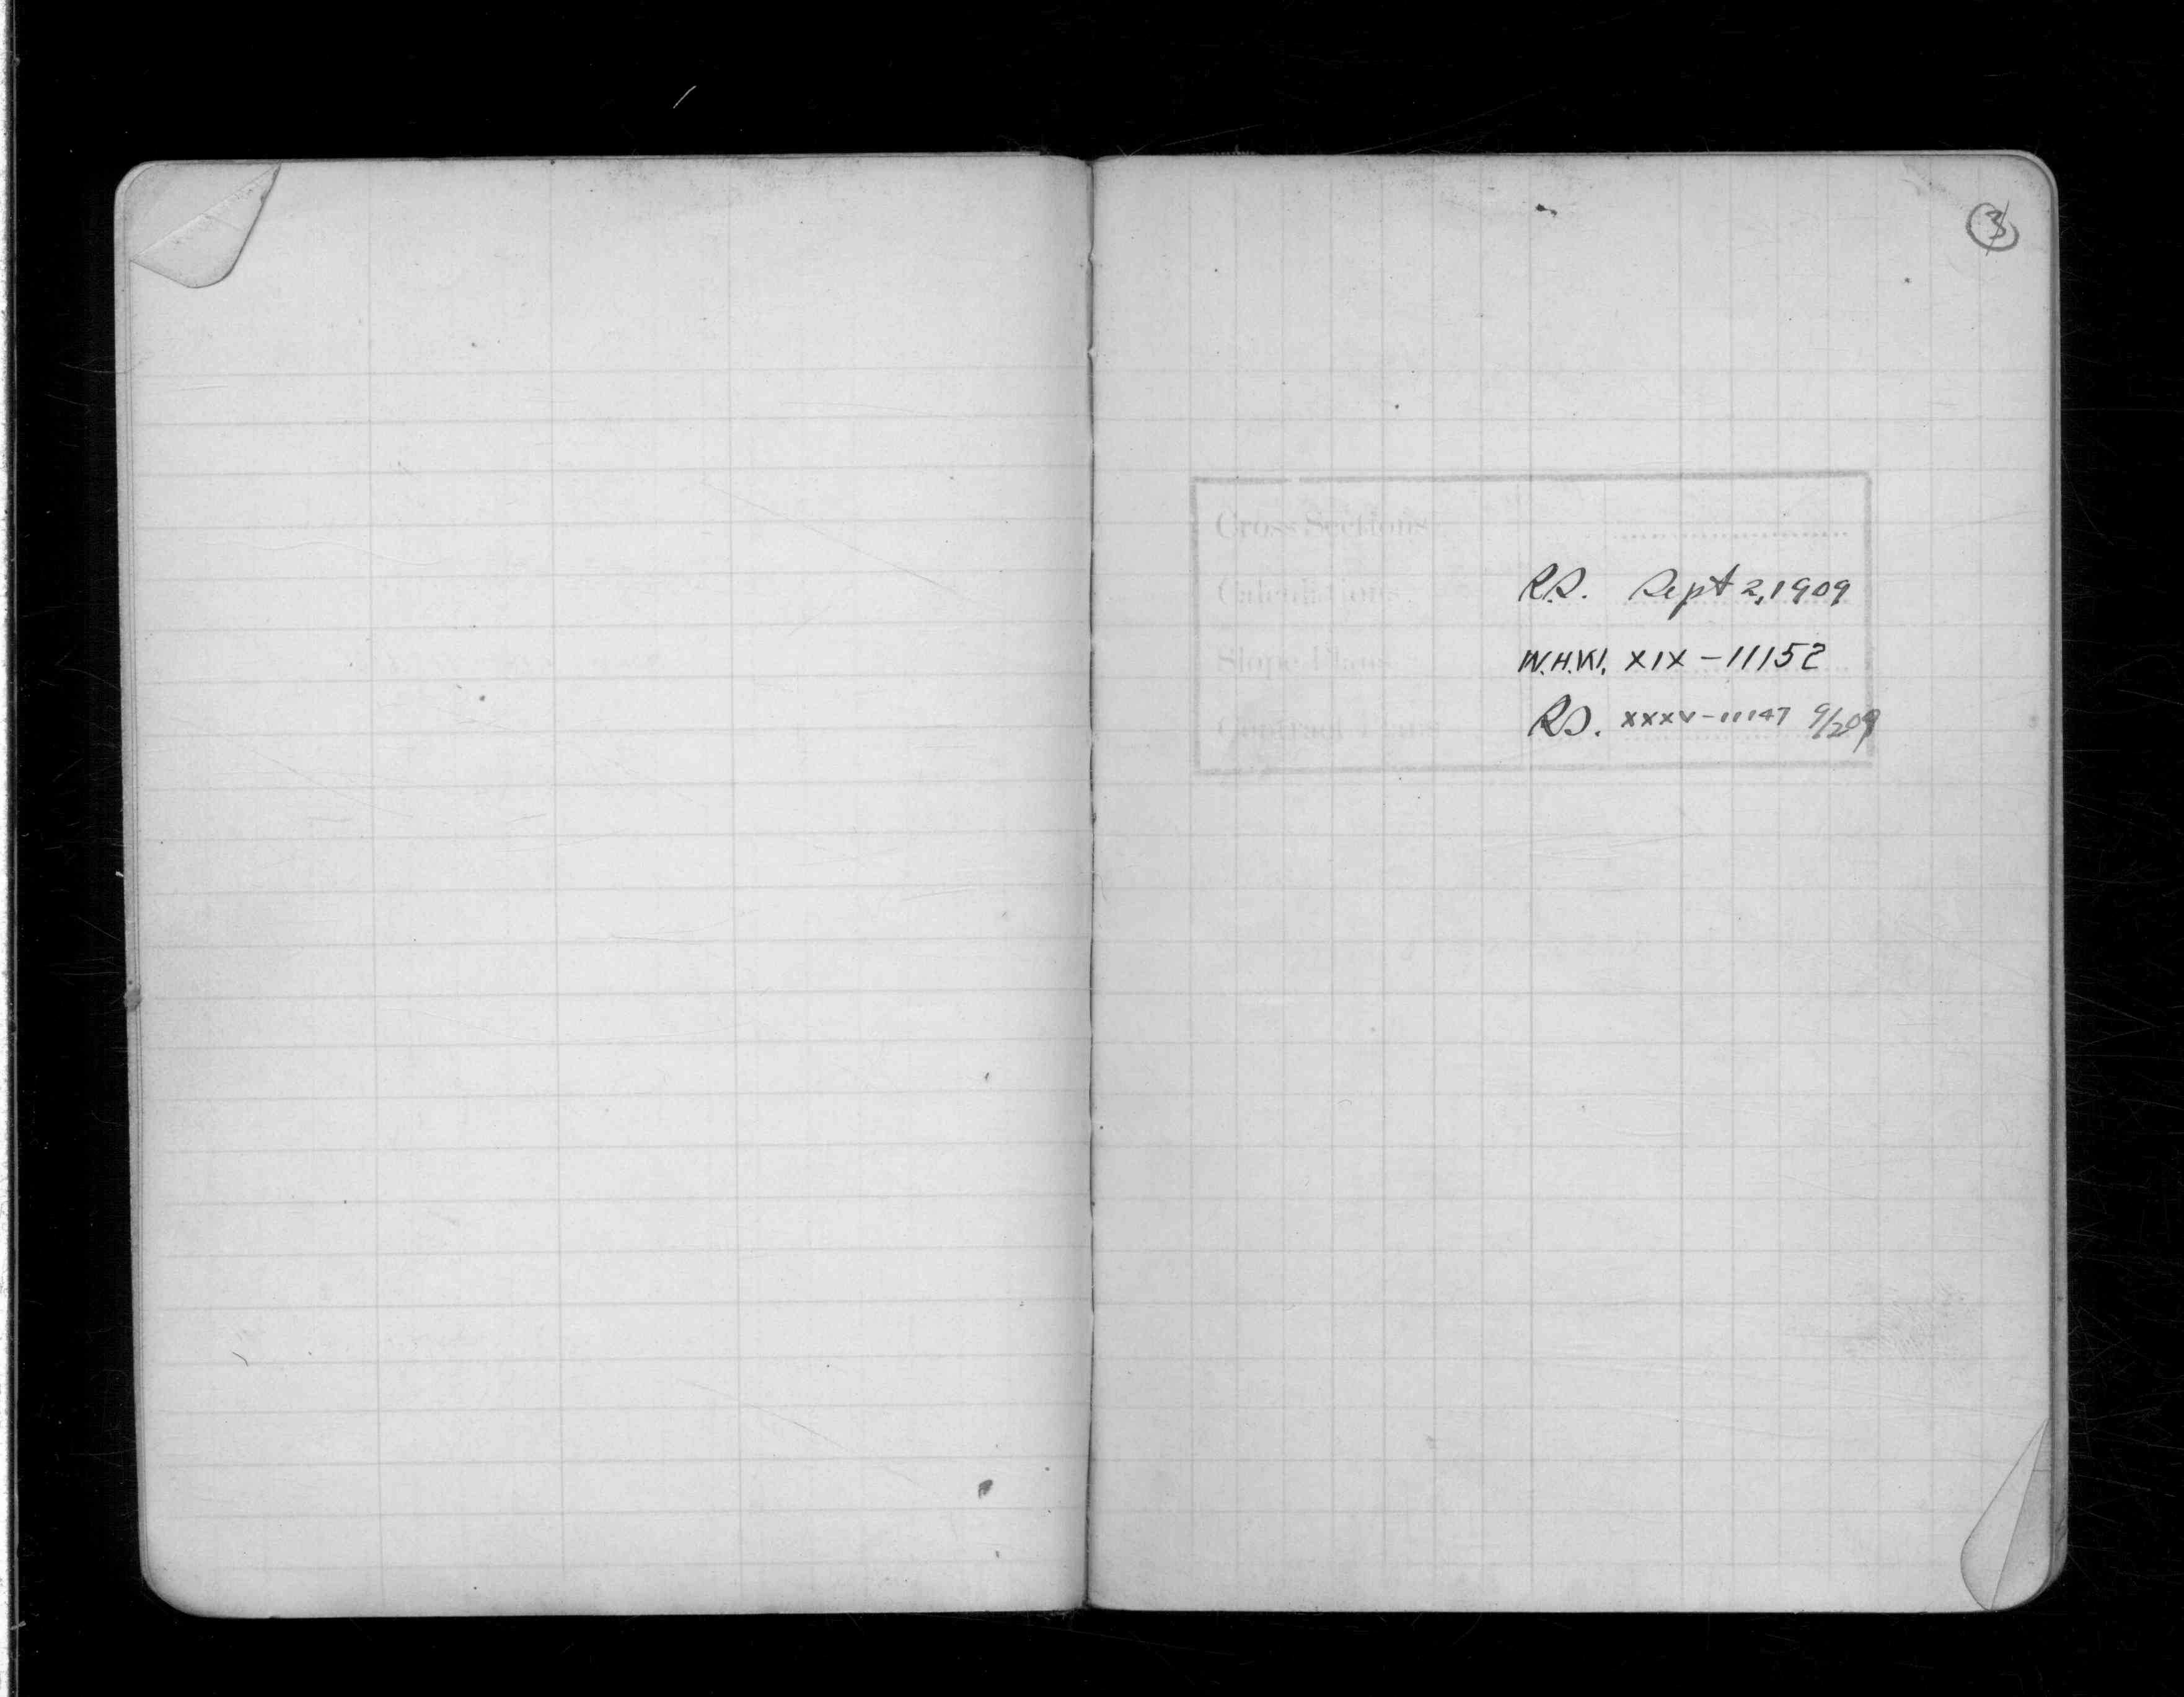 3
Cross Sections
Calculations R.S. Sept 2, 1909
Slope Plans W.H.W. XIX-11152
Contract Plans R.S. XXXV-11147 9/2 09